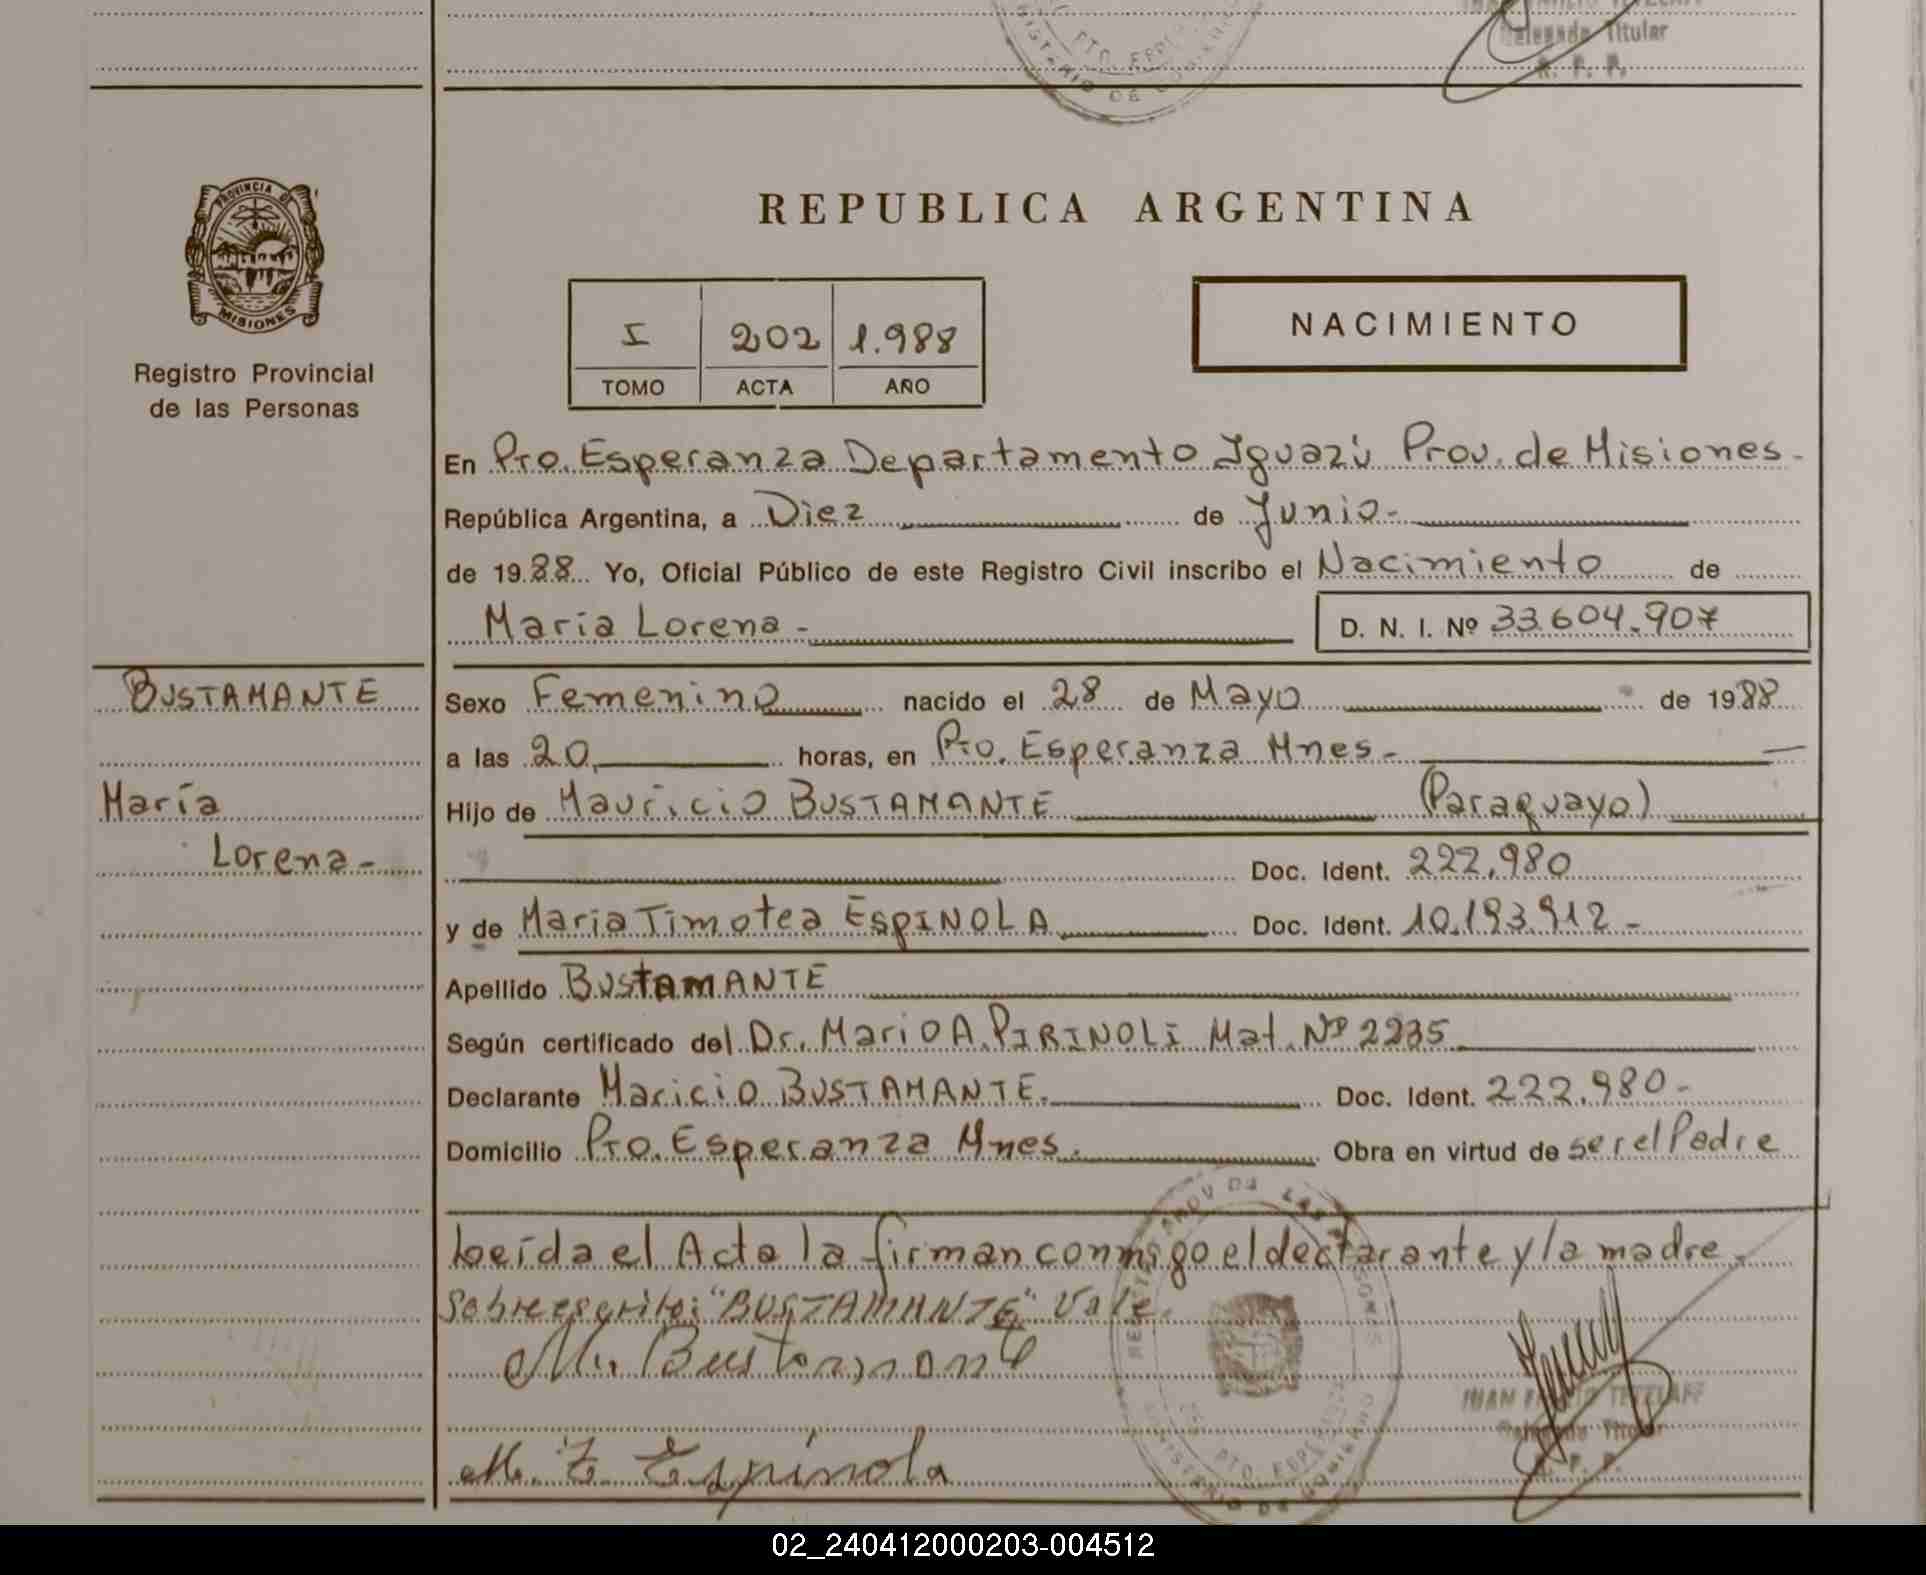 Delegado Titular
R. P. P.
PROVINCIA DE
MISIONES
Registro Provincial
de las Personas
REPUBLICA ARGENTINA
I 202 1.988
TOMO ACTA AÑO
NACIMIENTO
En Pto. Esperanza Departamento Iguazú Prov. de Misiones-
República Argentina, a Diez de Junio-
de 1988 Yo, Oficial Público de este Registro Civil inscribo el Nacimiento de
María Lorena- D. N. I. Nº 33.604.907
BUSTAMANTE
María
Lorena-
Sexo Femenino nacido el 28 de Mayo de 1988
a las 20 horas, en Pto. Esperanza Mnes-
Hijo de Mauricio BUSTAMANTE (Paraguayo)
Doc. Ident. 222.980
y de María Timotea ESPINOLA Doc. Ident. 10.193.912-
Apellido BUSTAMANTE
Según certificado del Dr. Mario A. PIRINOLI Mat. Nº 2235
Declarante Maricio BUSTAMANTE. Doc. Ident. 222.980-
Domicilio Pto. Esperanza Mnes. Obra en virtud de ser el Padre
Leída el Acta la firman conmigo el declarante y la madre.
Sobreescrito: "BUSTAMANTE" Vale.
M. Bustamante
M. T. Espinola
PTO. ESPERANZA
Delegado Titular
R. P. P.
02_240412000203-004512